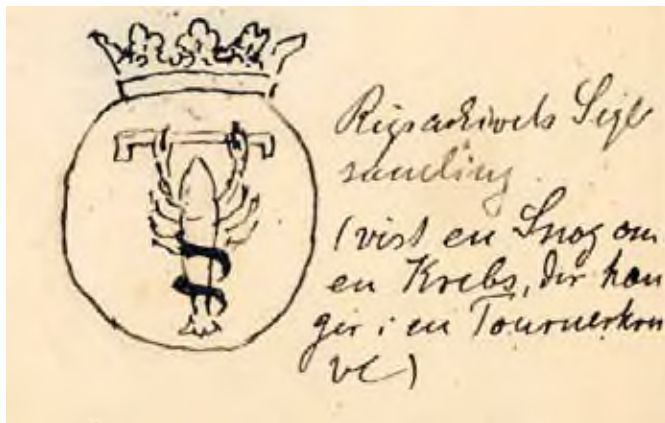 Rigsarkivets Segl
samling
(vist en Snog om
en Krebs, der hæn
ger i en Tournerkra
ve)